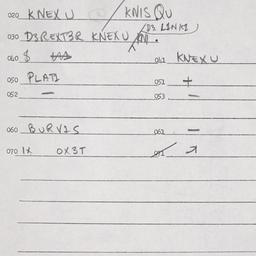 020 KNEX U / KNIS QU
D3 LINKI
030 D3REKT3R KNEX U
040 $ 041 KNEX U
050 PLATI 051 +
052 — 053 —
060 BURVIS 061 —
070 1X OX3T 071